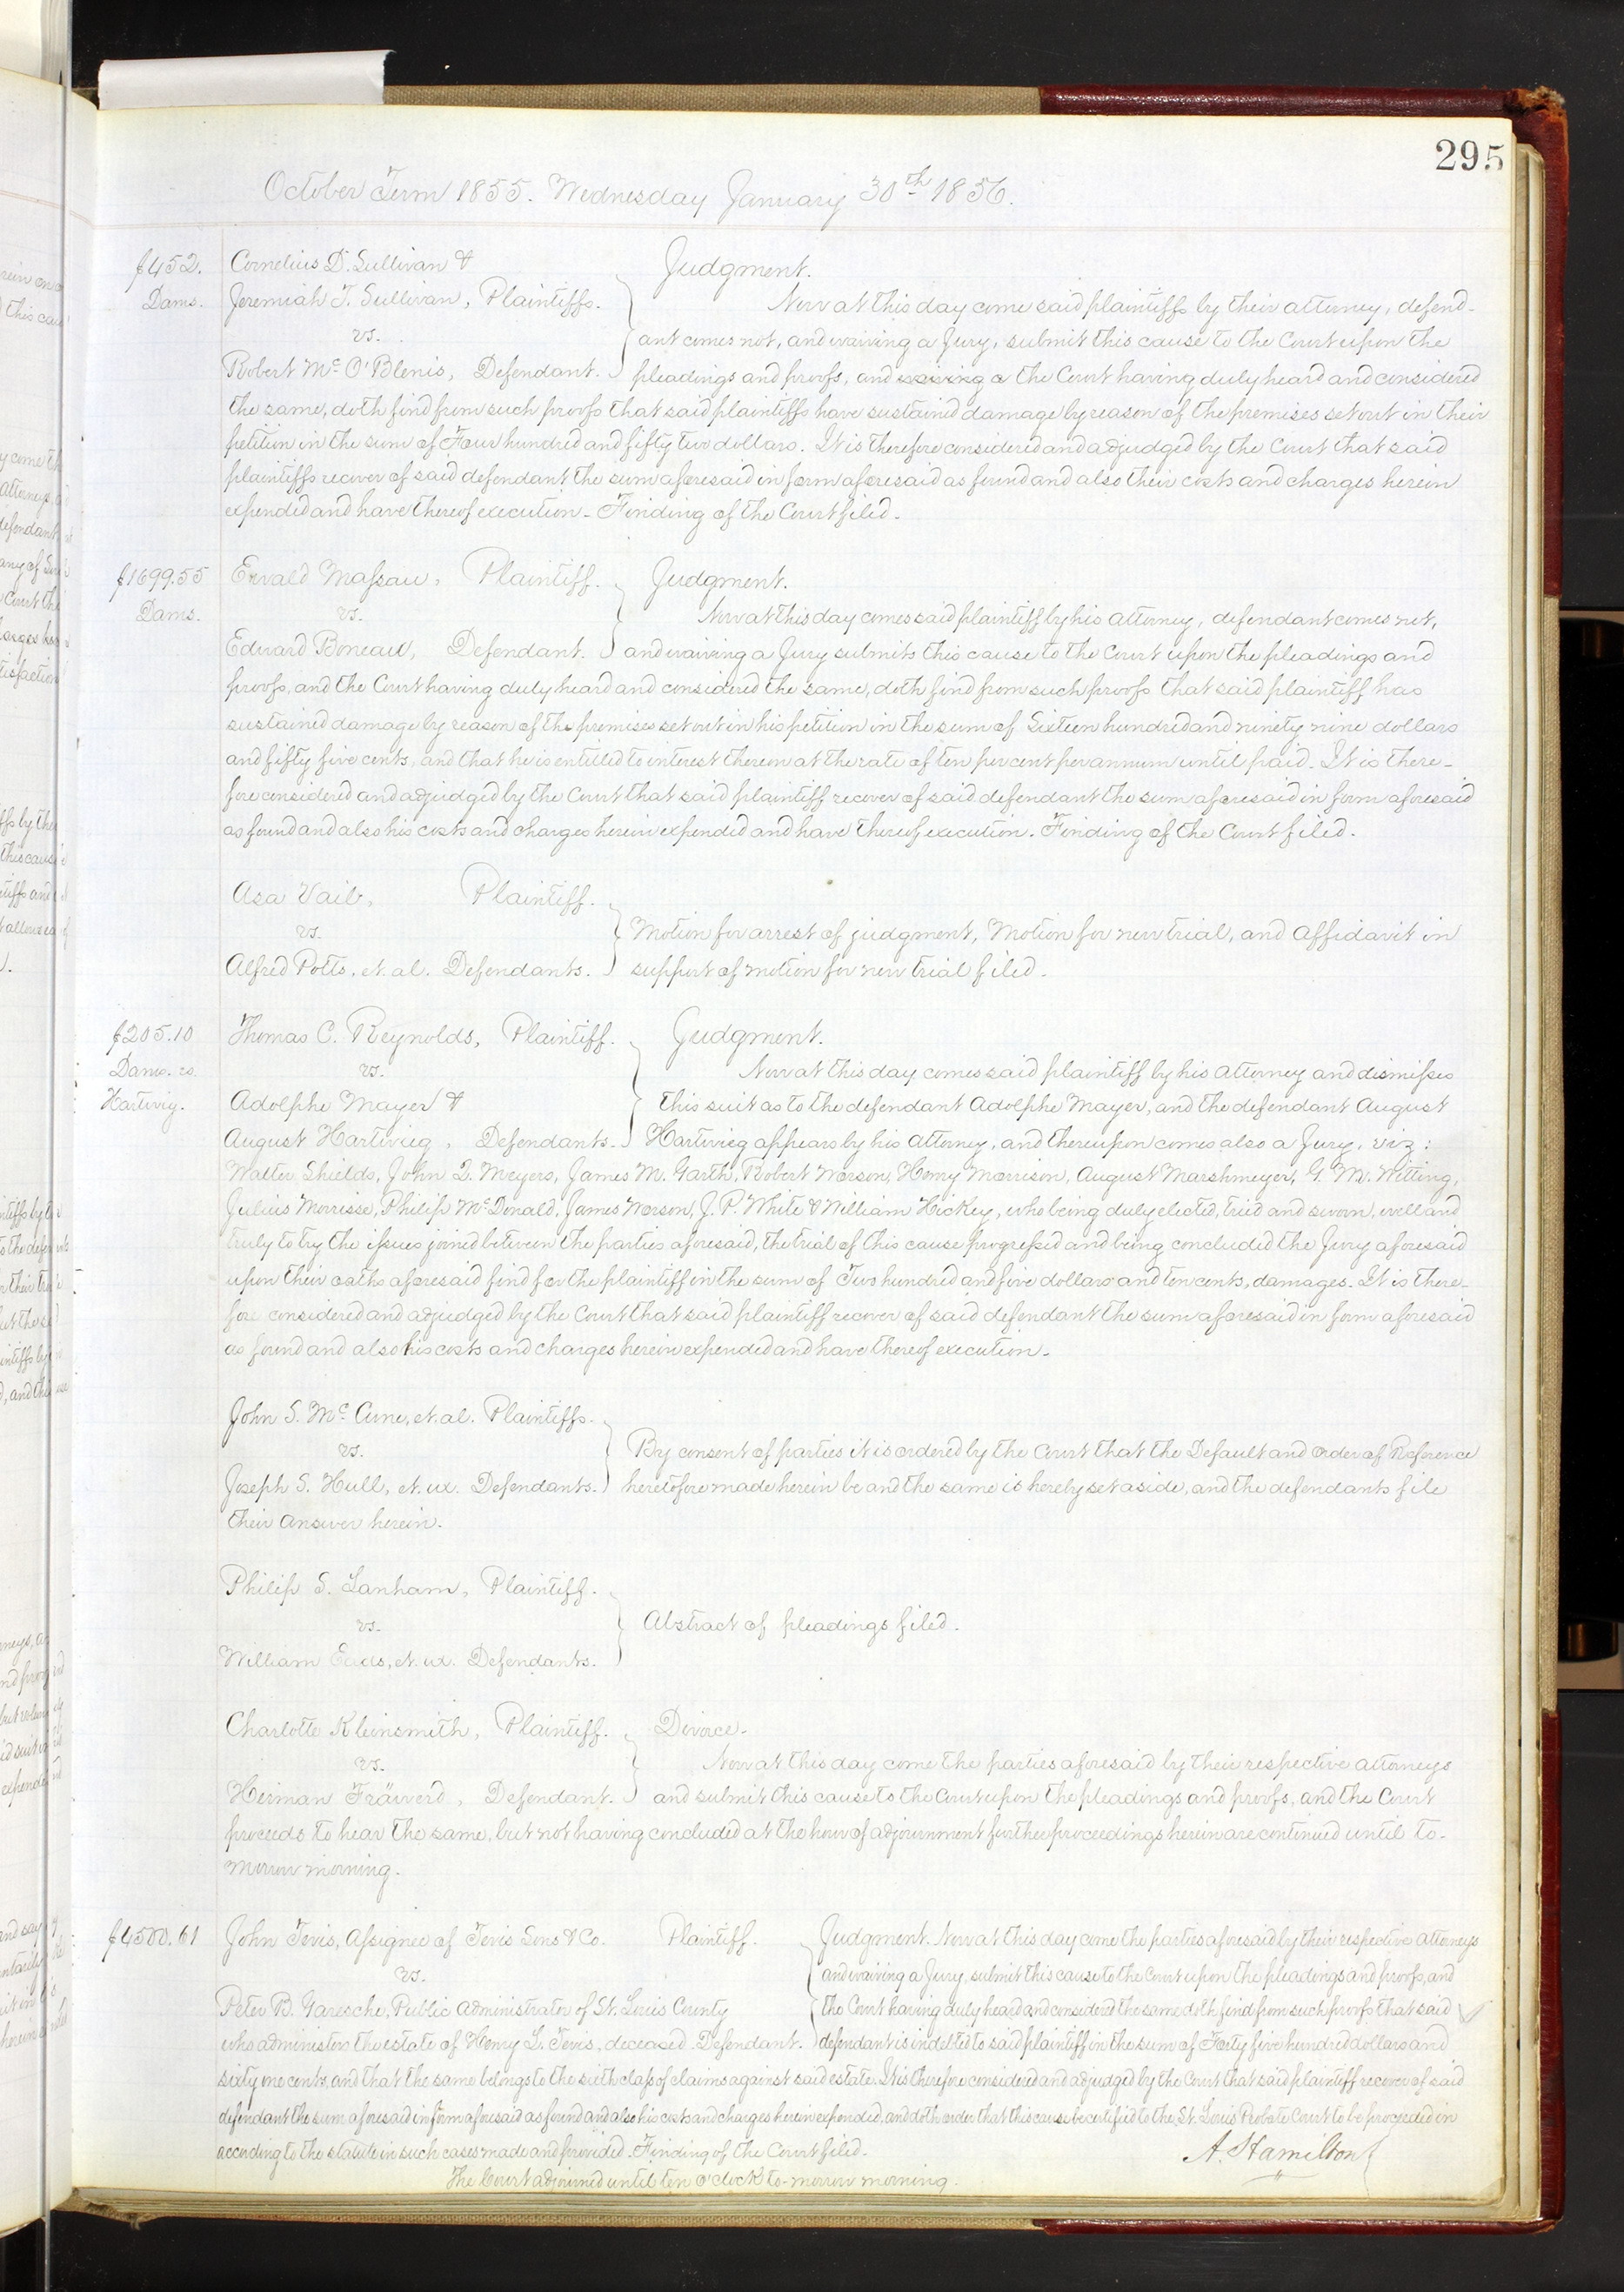 295
October Term 1855. Wednesday January 30th 1856.
$452. Cornelius D. Sullivan & Judgment.
Dams. Jeremiah T. Sullivan, Plaintiffs. Now at this day come said plaintiffs by their attorney, defend-
vs. ant comes not, and waiving a Jury, submit this cause to the Court upon the
Robert Mc O'Blenis, Defendant. pleadings and proofs, and waiving a the Court having duly heard and considered
the same, doth find from such proofs that said plaintiffs have sustained damage by reason of the premises set out in their
petition in the sum of Four hundred and fifty two dollars. It is therefore considered and adjudged by the Court that said
plaintiffs recover of said defendant the sum aforesaid in form aforesaid as found and also their costs and charges herein
expended and have thereof execution. Finding of the Court filed.
$1699.55 Ewald Massau, Plaintiff. Judgment.
Dams. vs. Now at this day comes said plaintiff by his attorney, defendant comes not,
Edward Boneau, Defendant. and waiving a Jury submits this cause to the Court upon the pleadings and
proofs, and the Court having duly heard and considered the same, doth find from such proofs that said plaintiff has
sustained damage by reason of the premises set out in his petition in the sum of Sixteen hundred and ninety nine dollars
and fifty five cents, and that he is entitled to interest thereon at the rate of ten per cent per annum until paid. It is there-
fore considered and adjudged by the Court that said plaintiff recover of said defendant the sum aforesaid in form aforesaid
as found and also his costs and charges herein expended and have thereof execution. Finding of the Court filed.
Asa Vail, Plaintiff.
vs. Motion for arrest of judgment, Motion for new trial, and affidavit in
Alfred Potts, et. al. Defendants. support of motion for new trial filed.
$205.10 Thomas C. Reynolds, Plaintiff. Judgment.
Dams. vs. vs. Now at this day comes said plaintiff by his attorney and dismisses
Hartwig. Adolphe Mayer & this suit as to the defendant Adolphe Mayer, and the defendant August
August Hartwieg, Defendants. Hartwieg appears by his attorney, and thereupon comes also a Jury, viz:
Walter Shields, John Q. Meyers, James M. Garth, Robert Worson, Henry Morrison, August Marshmeyer, G. M. Witting,
Julius Morrisse, Philip McDonald, James Worson, J. P. White & William Hickey, who being duly elected, tried and sworn, well and
truly to try the issues joined between the parties aforesaid, the trial of this cause progressed and being concluded the Jury aforesaid
upon their oaths aforesaid find for the plaintiff in the sum of Two hundred and five dollars and ten cents, damages. It is there-
fore considered and adjudged by the Court that said plaintiff recover of said defendant the sum aforesaid in form aforesaid
as found and also his costs and charges herein expended and have thereof execution.
John S. McCune, et. al. Plaintiffs.
vs. By consent of parties it is ordered by the Court that the Default and order of Reference
Joseph S. Hull, et. ux. Defendants. heretofore made herein be and the same is hereby set aside, and the defendants file
their answer herein.
Philip S. Lanham, Plaintiff.
vs. Abstract of pleadings filed.
William Eads, et. ux. Defendants.
Charlotte Kleinsmith, Plaintiff. Divorce.
vs. Now at this day come the parties aforesaid by their respective attorneys
Heiman Fräwerd, Defendant. and submit this cause to the Court upon the pleadings and proofs, and the Court
proceeds to hear the same, but not having concluded at the hour of adjournment further proceedings herein are continued until to-
morrow morning.
$4500.61 John Tevis, Assignee of Tevis Sons & Co. Plaintiff. Judgment. Now at this day come the parties aforesaid by their respective attorneys
vs. and waiving a Jury, submit this cause to the Court upon the pleadings and proofs, and
Peter B. Garesche, Public Administrator of St. Louis County the Court having duly heard and considered the same doth find from such proofs that said
who administers the estate of Henry L. Tevis, deceased. Defendant. defendant is indebted to said plaintiff in the sum of Forty five hundred dollars and
sixty one cents, and that the same belongs to the sixth class of claims against said estate. It is therefore considered and adjudged by the Court that said plaintiff recover of said
defendant the sum aforesaid in form aforesaid as found and also his costs and charges herein expended, and doth order that this cause be certified to the St. Louis Probate Court to be proceeded in
according to the statute in such cases made and provided. Finding of the Court filed. A. Hamilton
The Court adjourned until ten o'clock to-morrow morning.